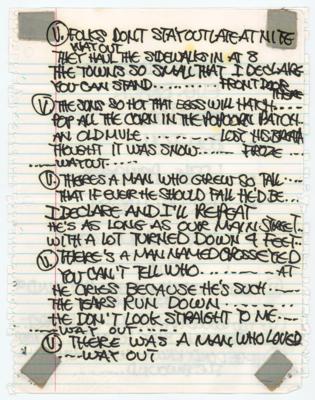 V. FOLKS DON'T STAY OUT LATE AT NITE
WAY OUT
THEY HAUL THE SIDEWALKS IN AT 8
THE TOWN'S SO SMALL THAT I DECLARE
YOU CAN STAND...... FRONT DOOR
THERE
V THE SUNS SO HOT THAT EGGS WILL HATCH....
POP ALL THE CORN IN THE POPCORN PATCH
AN OLD MULE ....... LOST HIS BREATH
THOUGHT IT WAS SNOW..... FROZE
....WAY OUT....
V. THERES A MAN WHO GREW SO TALL....
THAT IF EVER HE SHOULD FALL HE'D BE...
I DECLARE AND I'LL REPEAT
HE'S AS LONG AS OUR MAIN STREET..
WITH A LOT TURNED DOWN 4 FEET..
V. THERE'S A MAN NAMED CROSS EYED
YOU CAN'T TELL WHO ........ AT
HE CRIES BECAUSE HE'S SUCH.....
THE TEARS RUN DOWN ........
HE DON'T LOOK STRAIGHT TO ME...
....WAY OUT.....
V THERE WAS A MAN WHO LOVED
....WAY OUT